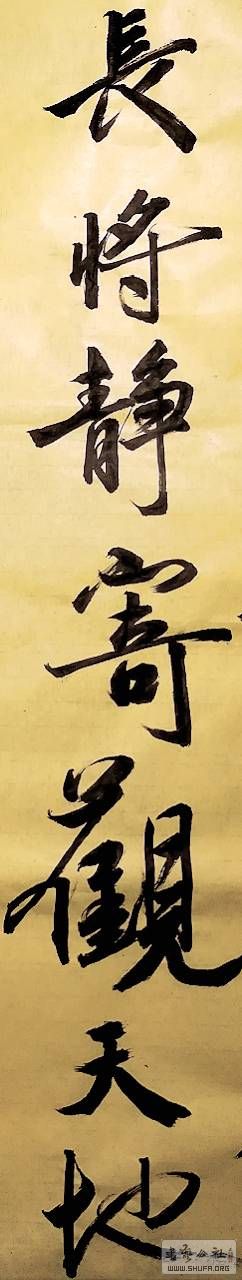 長將靜寄觀天地
書法公社
WWW.SHUFA.ORG